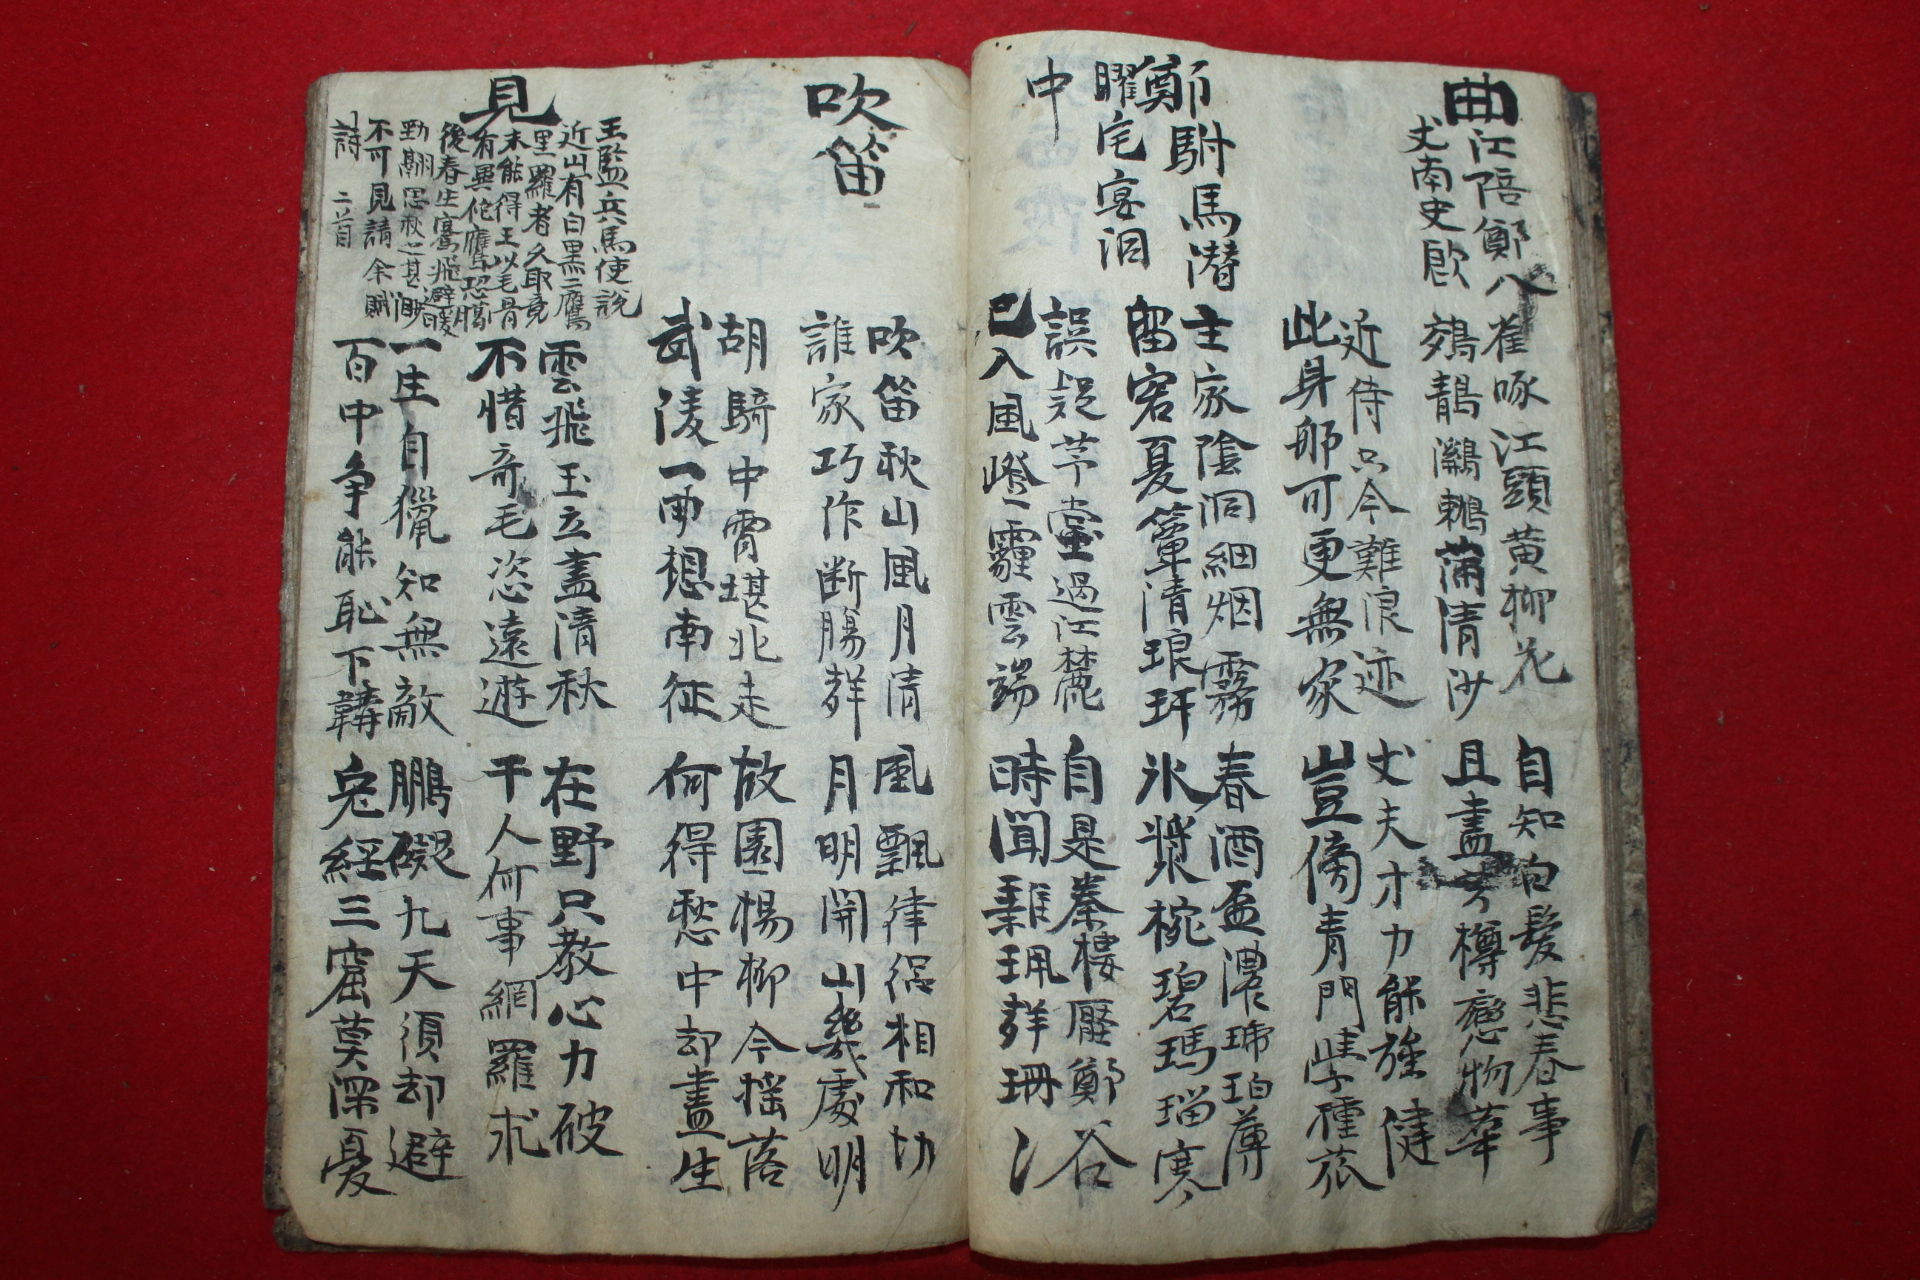 曲江陪鄭八
丈南史飮
雀啄江頭黃柳花
鵁鶄鸂鶒蒲清沙
自知白髮悲春事
且盡芳樽戀物華
近侍只今難浪迹
此身那可更無家
丈夫才力能强健
豈傍青門學種苽
鄭駙馬潜
曜宅宴洞
中
主家陰洞細烟霧
留客夏簟清琅玕
春酒盃濃琥珀薄
氷漿椀碧瑪瑙寒
誤疑茅堂過江麓
已入風磴霾雲端
自是秦樓壓鄭谷
時聞雜珮聲珊〻
吹笛
吹笛秋山風月清
誰家巧作断膓聲
風飄律呂相和切
月明關山幾處明
胡騎中宵堪北走
武陵一曲想南征
故園楊柳今搖落
何得愁中却盡生
見王監兵馬使說
近山有白黑二鷹
羅者久取竟
未能得王以毛骨
有異佗鷹恐臘
後春生騫飛避暖
勁翮思秋之甚眇
不可見請余賦
詩 二首
雲飛玉立盡清秋
不惜奇毛恣遠遊
在野只教心力破
千人何事網羅求
一生自獵知無敵
百中爭能恥下韝
鵬礙九天須却避
兔經三窟莫深憂